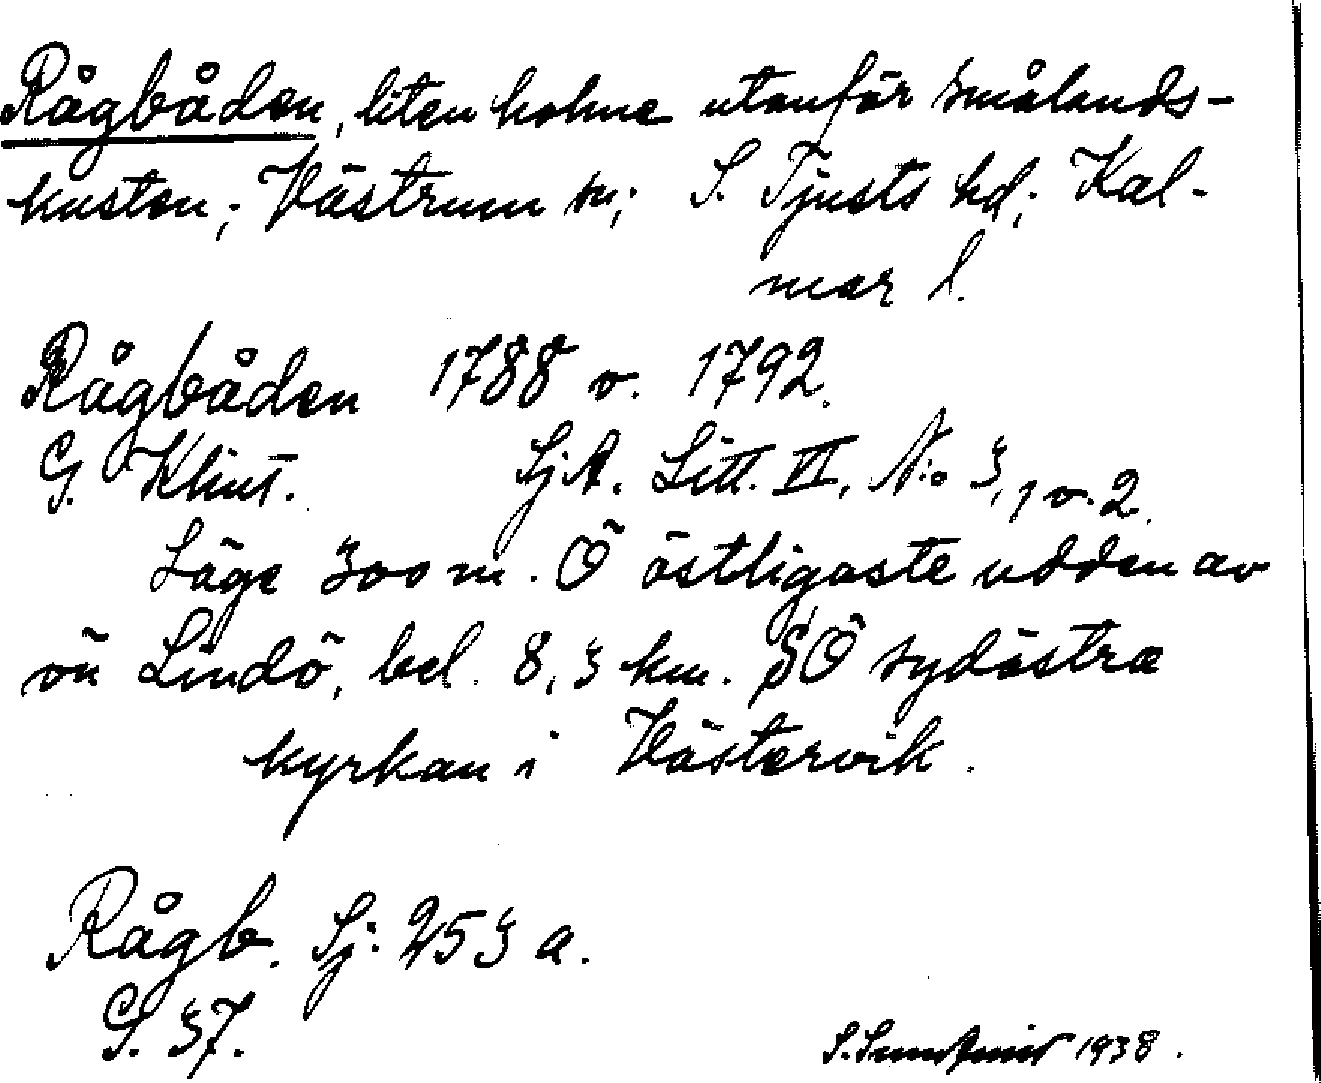 Rågbåden, liten holme utanför smålands-
kusten; Västrum sn; S. Tjusts hd; Kal-
mar l.
Rågbåden 1788 o. 1792.
G. Klint. SjA. Litt. VI, N:o 3, 1 o. 2.
Läge 300 m. Ö östligaste udden av
ön Lindö, bel. 8,3 km. SÖ sydöstra
kyrkan i Västervik.
Rågb. Sj: 253 a.
G. 37.
S. 1938.